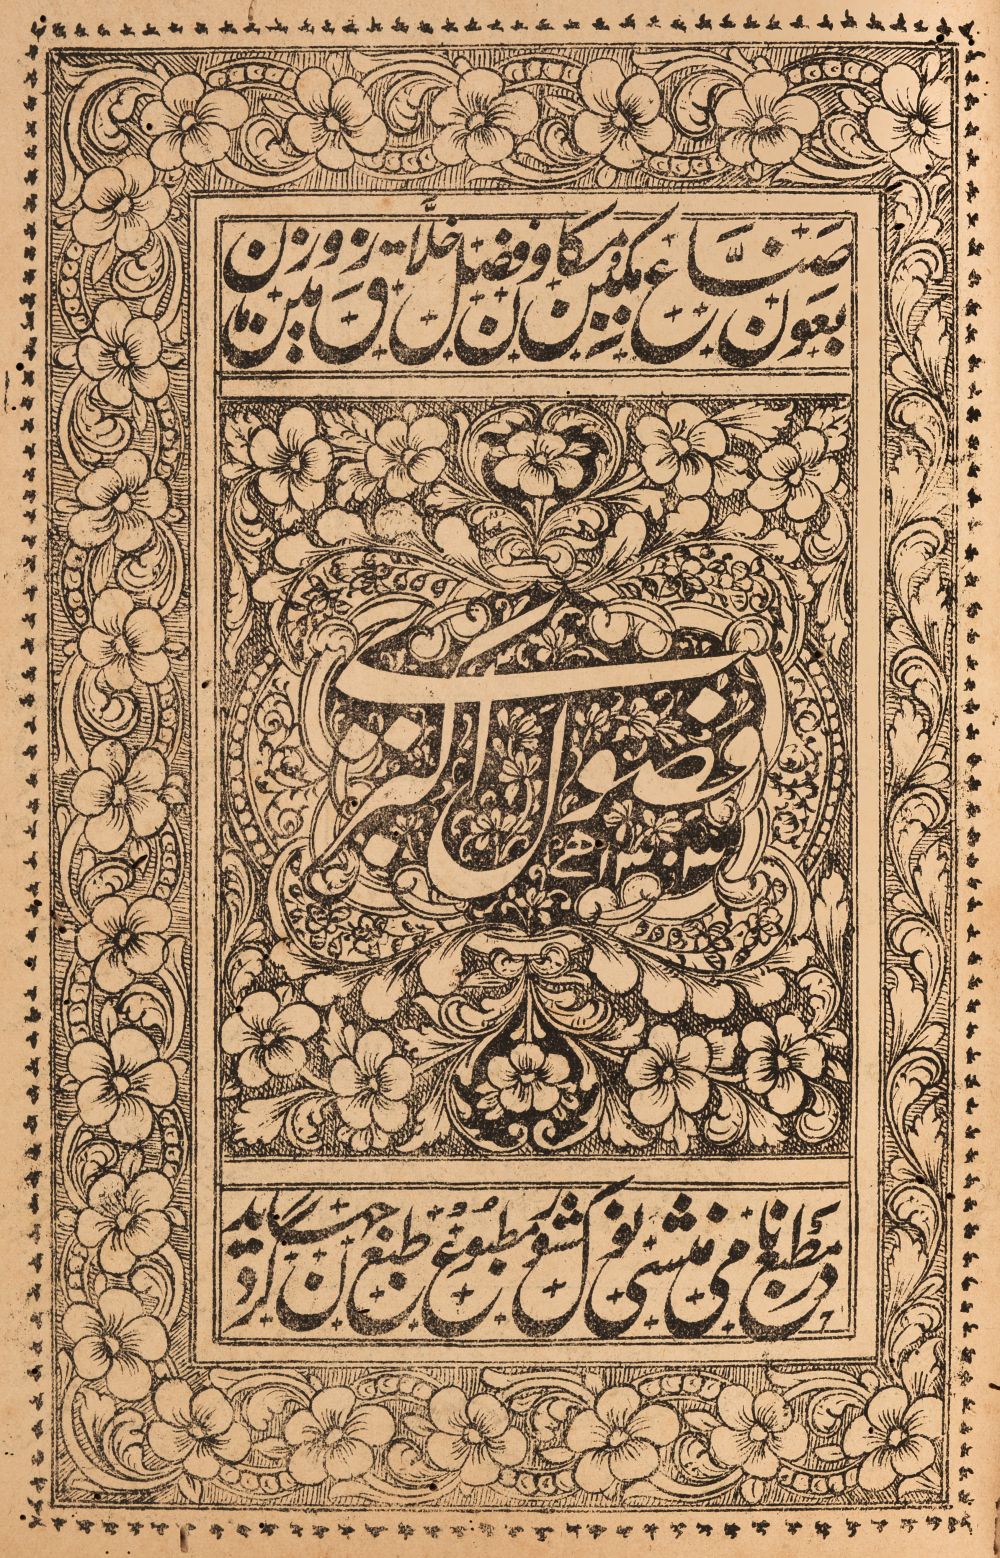 بعون صناع مکین و مکان و فضل خلاق زمین و زمان
فصول اکبری
۱۳۰۳ھ
در مطبع نامی منشی نولکشور مطبوع طبع جہان گردید